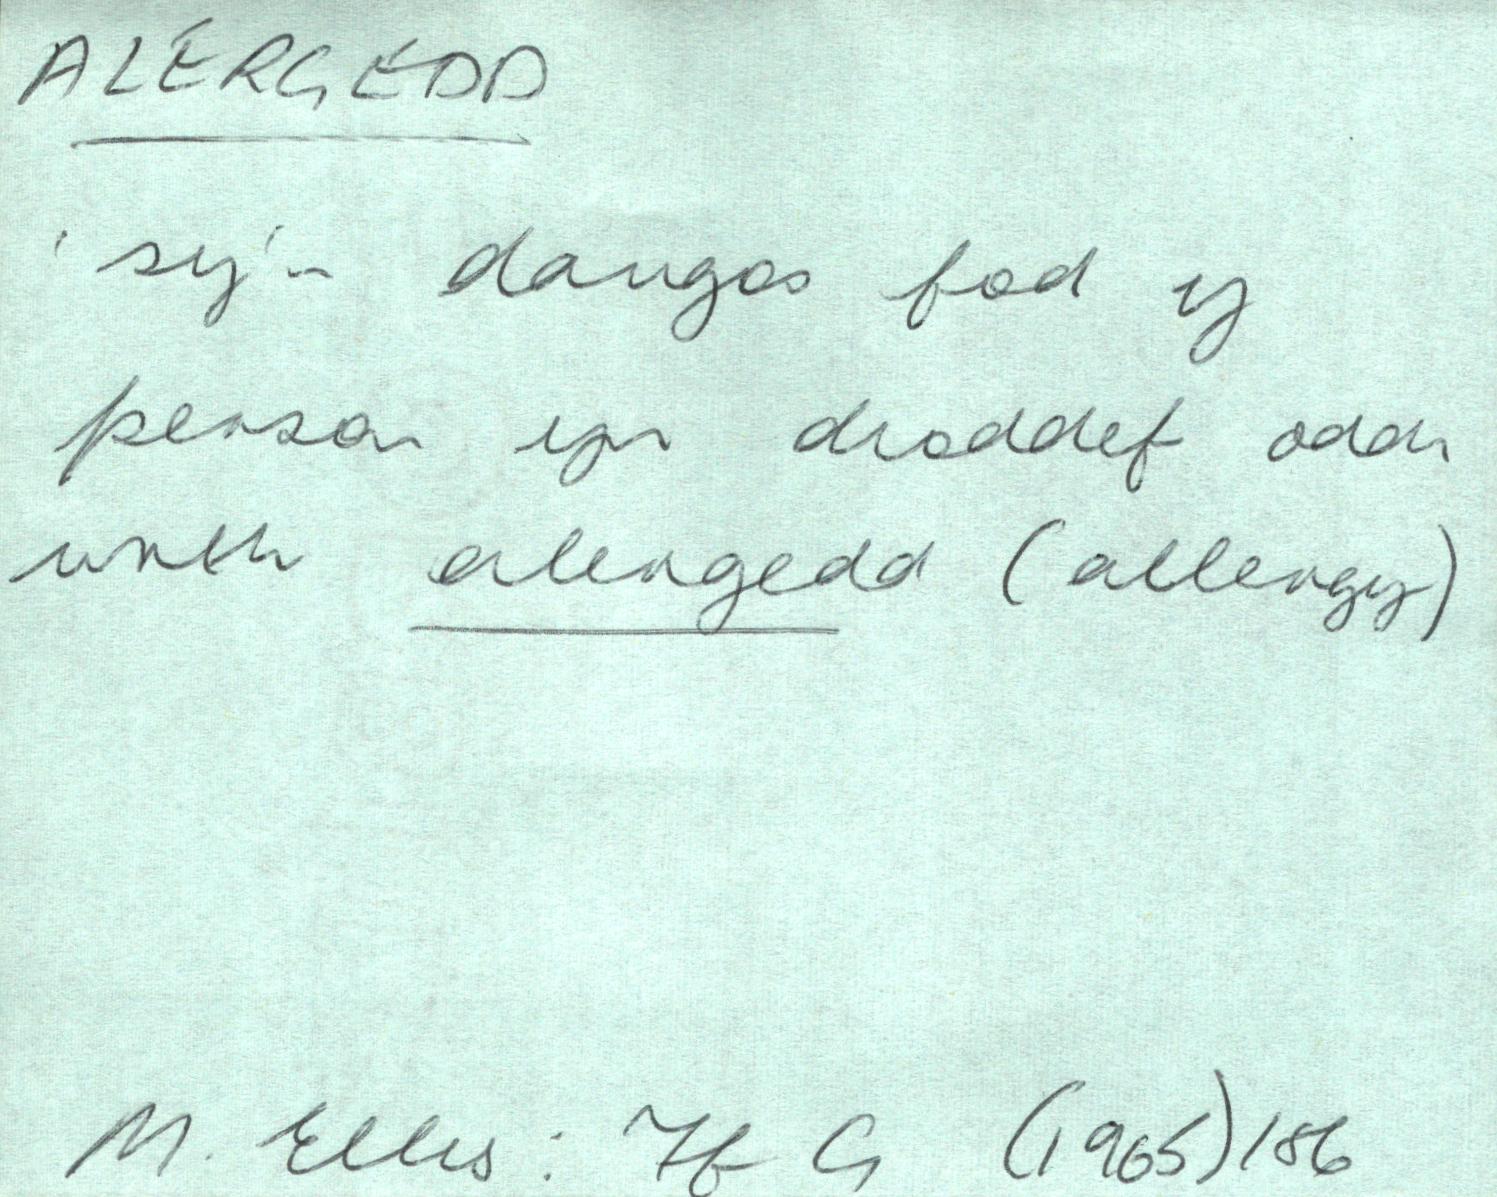 ALERGEDD
'sy'n dangos fod y
person yn dioddef oddi
wrth alergedd (allergy)
M. Ellis: Ff G (1965) 186